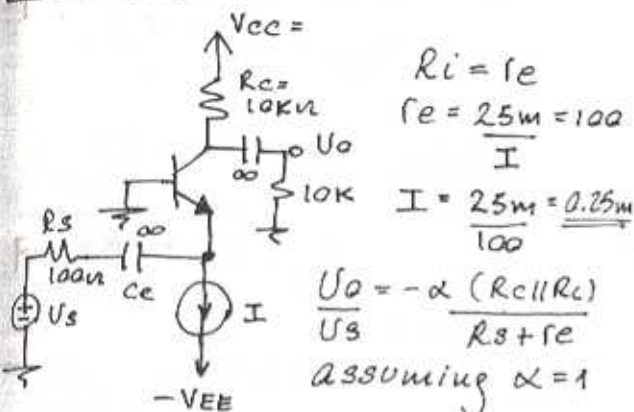 Vcc =
Rc =
10KΩ
Uo
∞
10K
Rs
∞
100Ω
Ce
Us
I
-VEE
Ri = re
re = 25m = 100
I
I = 25m = 0.25m
100
Uo = -α (Rc||Rc)
Us Rs + re
assuming α = 1